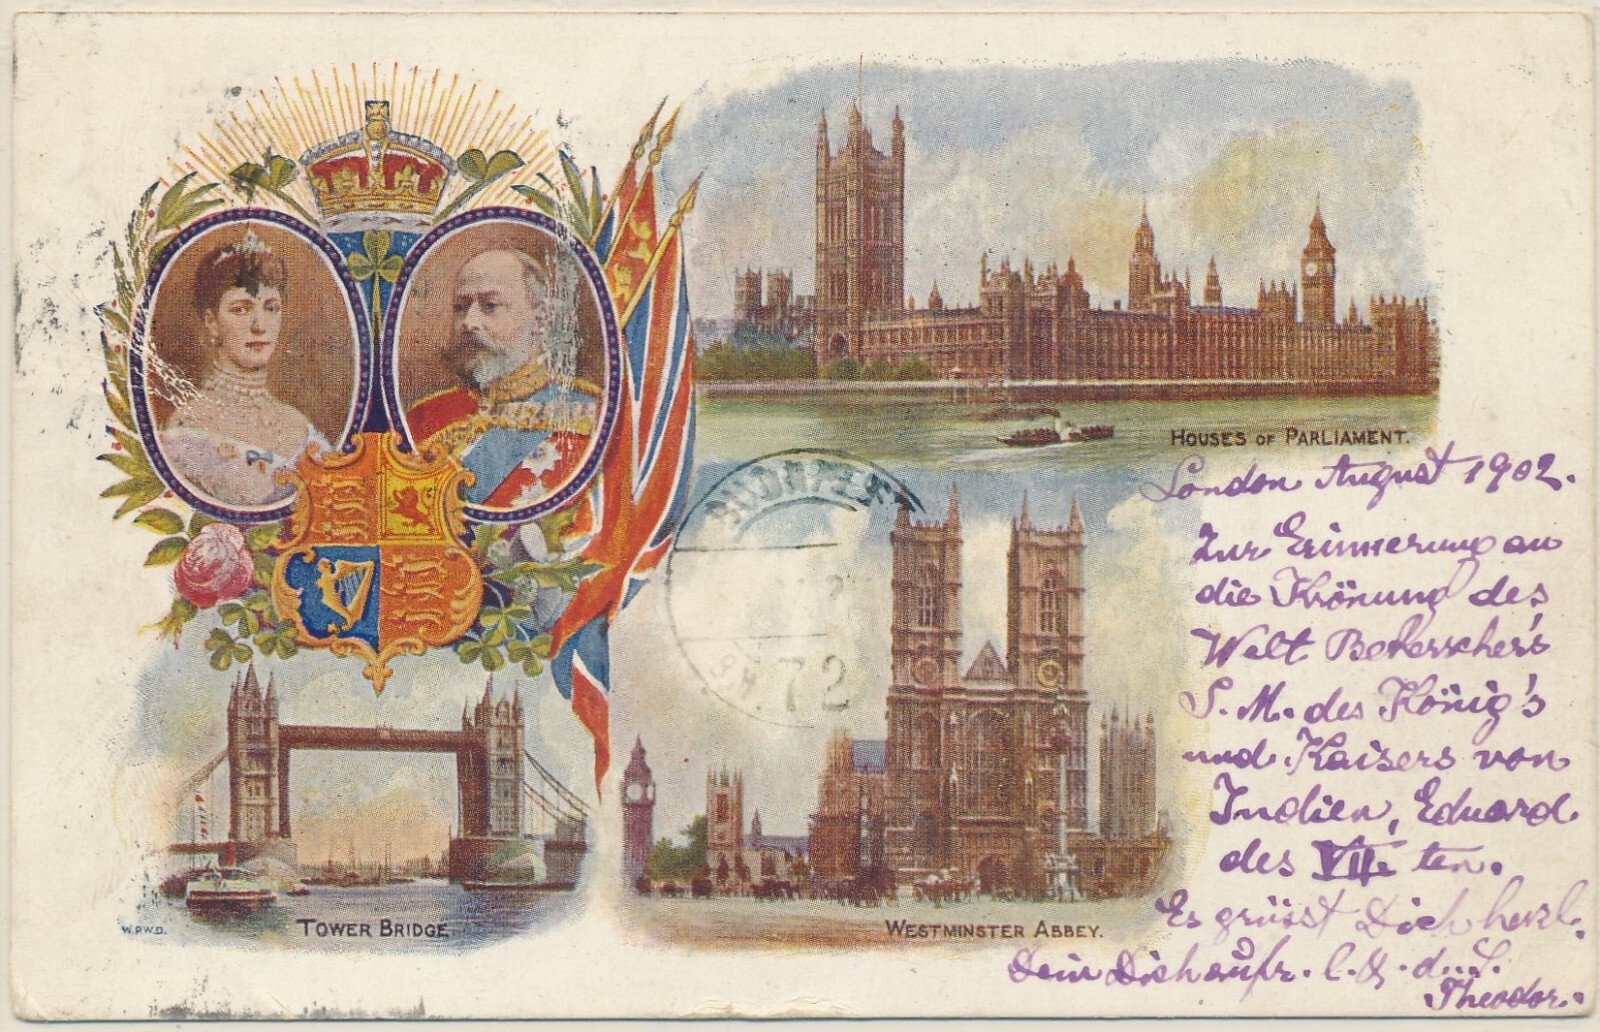 HOUSES OF PARLIAMENT.
London August 1902.
Zur Erinnerung an
die Krönung des
Welt Beherrscher's
S. M. des König's
und Kaisers von
Indien, Eduard
des VII. ten.
Es grüsst Dich herzl.
Dein Dich aufr. l. d...
Theodor.
BUCUREST
72
W.P.W.D.
TOWER BRIDGE
WESTMINSTER ABBEY.